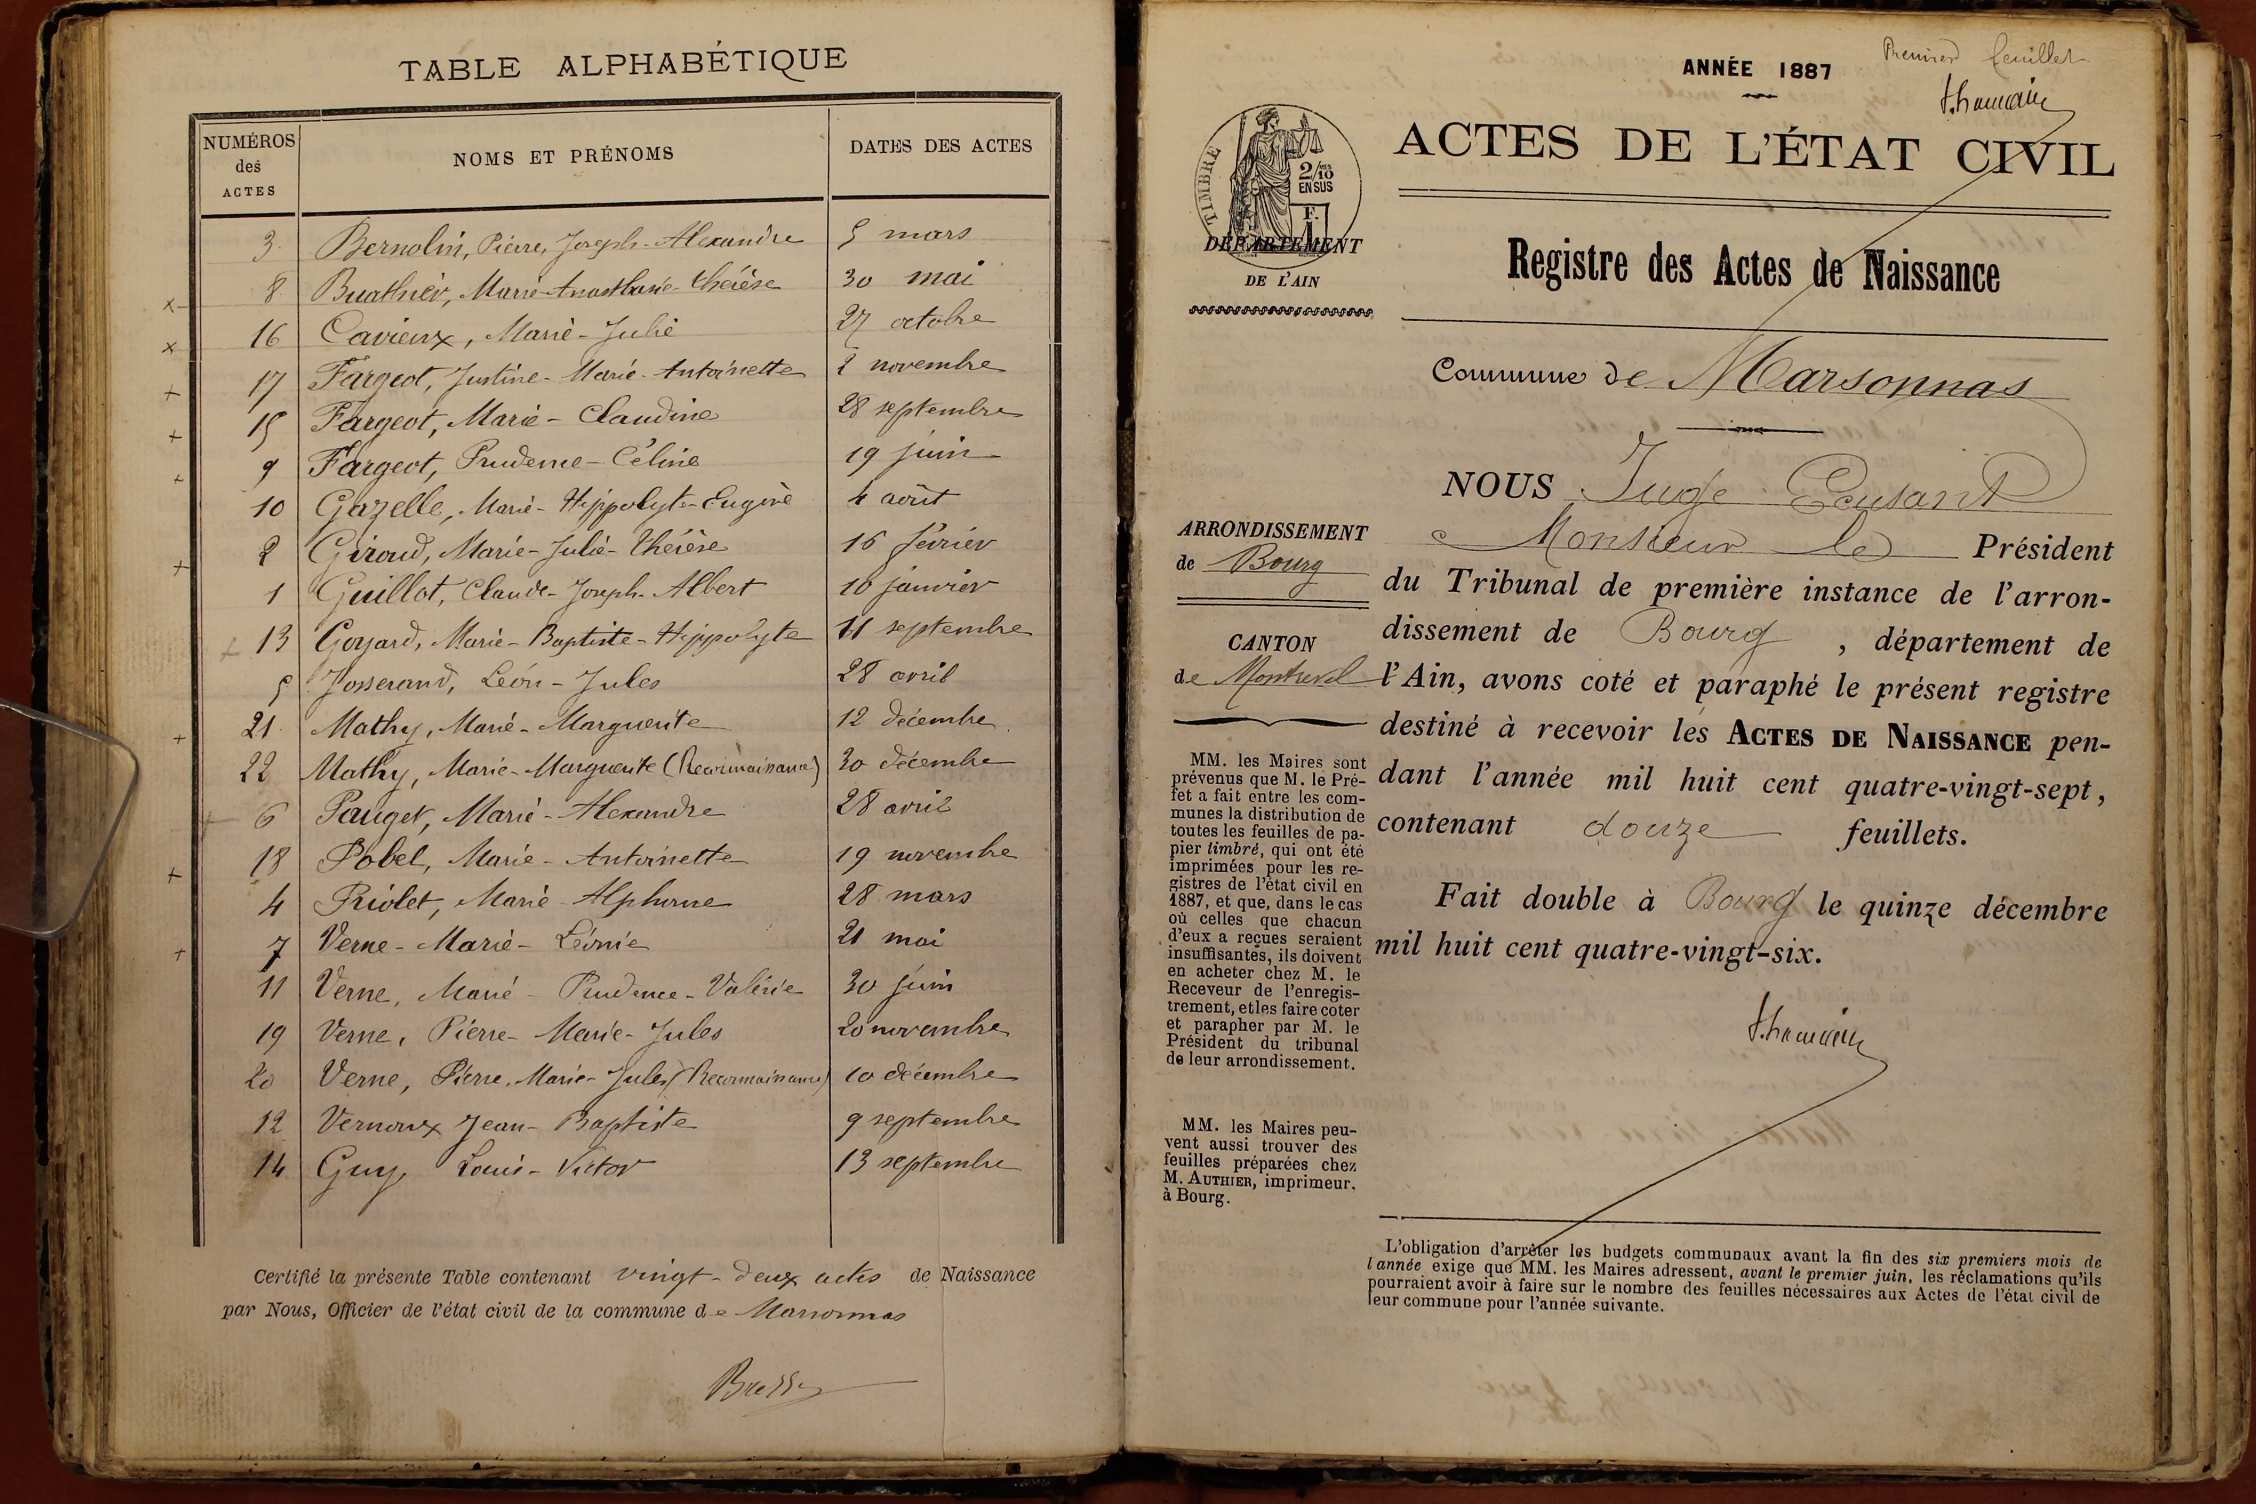 TABLE ALPHABÉTIQUE
NUMÉROS des ACTES
NOMS ET PRÉNOMS
DATES DES ACTES
3 Bernolin, Pierre, Joseph-Alexandre 5 mars
8 Buathier, Marie-Anasthasie-Thérèse 30 mai
16 Cavieux, Marie-Julie 27 octobre
17 Fargeot, Justine-Marie-Antoinette 2 novembre
15 Fargeot, Marie-Claudine 28 septembre
9 Fargeot, Prudence-Céline 19 juin
10 Gazelle, Marie-Hippolyte-Eugène 4 août
2 Giroud, Marie-Julie-Thérèse 16 février
1 Guillot, Claude-Joseph-Albert 10 janvier
13 Goyard, Marie-Baptiste-Hippolyte 11 septembre
5 Josserand, Léon-Jules 28 avril
21 Mathy, Marie-Marguerite 12 décembre
22 Mathy, Marie-Marguerite (Reconnaissance) 30 décembre
6 Pauget, Marie-Alexandre 28 avril
18 Pobel, Marie-Antoinette 19 novembre
4 Priolet, Marie-Alphonse 28 mars
7 Verne-Marie-Léonie 21 mai
11 Verne, Marie-Prudence-Valérie 30 juin
19 Verne, Pierre-Marie-Jules 20 novembre
20 Verne, Pierre, Marie-Jules (Reconnaissance) 10 décembre
12 Vernoux Jean-Baptiste 9 septembre
14 Guy, Louis-Victor 13 septembre
Certifié la présente Table contenant vingt-deux actes de Naissance
par Nous, Officier de l'état civil de la commune de Marsonnas
ANNÉE 1887
Premier feuillet
ACTES DE L'ÉTAT CIVIL
TIMBRE
2/10 MES
EN SUS
F.
DÉPARTEMENT
DE L'AIN
Registre des Actes de Naissance
Commune de Marsonnas
ARRONDISSEMENT
de Bourg
CANTON
de Montrevel
MM. les Maires sont
prévenus que M. le Pré-
fet a fait entre les com-
munes la distribution de
toutes les feuilles de pa-
pier timbré, qui ont été
imprimées pour les re-
gistres de l'état civil en
1887, et que, dans le cas
où celles que chacun
d'eux a reçues seraient
insuffisantes, ils doivent
en acheter chez M. le
Receveur de l'enregis-
trement, et les faire coter
et parapher par M. le
Président du tribunal
de leur arrondissement.
MM. les Maires peu-
vent aussi trouver des
feuilles préparées chez
M. AUTHIER, imprimeur.
à Bourg.
NOUS Juge
Monsieur le Président
du Tribunal de première instance de l'arron-
dissement de Bourg, département de
l'Ain, avons coté et paraphé le présent registre
destiné à recevoir les ACTES DE NAISSANCE pen-
dant l'année mil huit cent quatre-vingt-sept,
contenant douze feuillets.
Fait double à Bourg le quinze décembre
mil huit cent quatre-vingt-six.
L'obligation d'arrêter les budgets communaux avant la fin des six premiers mois de
l'année exige que MM. les Maires adressent, avant le premier juin, les réclamations qu'ils
pourraient avoir à faire sur le nombre des feuilles nécessaires aux Actes de l'état civil de
leur commune pour l'année suivante.